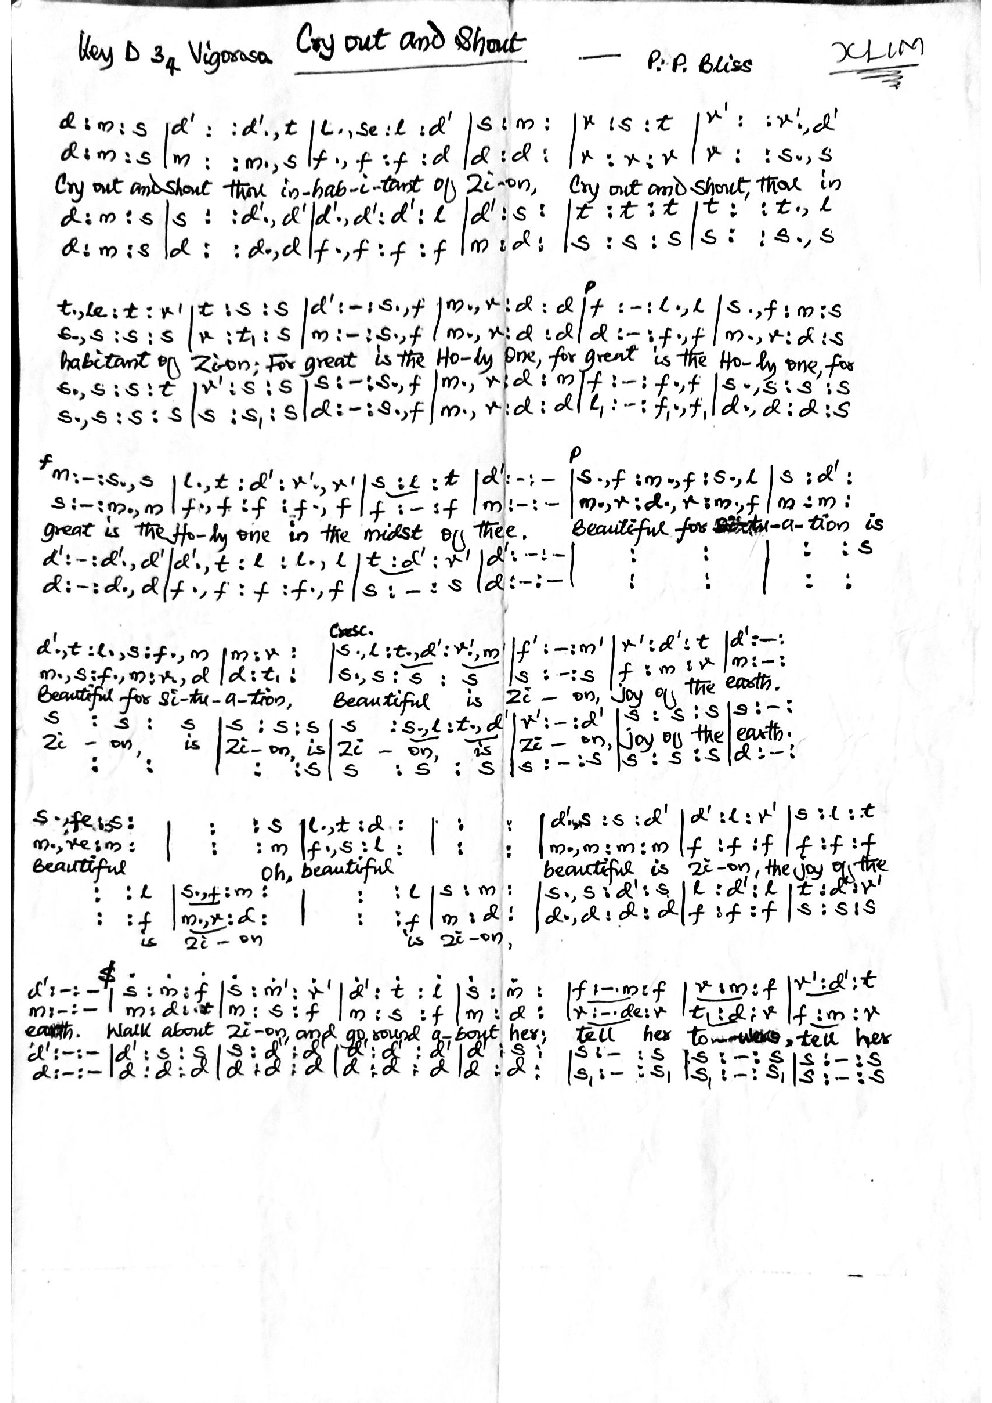 Key D 3/4 Vigorosa Cry out and Shout — P. P. Bliss XLIM
d : m : s | d' : : d'., t | l ., se : l : d' | s : m : | r : s : t | r' : : r'., d'
d : m : s | m : : m., s | f ., f : f : d | d : d : | r : r : r | r : : s., s
Cry out and shout thou in-hab-i-tant of Zi-on, Cry out and shout, thou in
d : m : s | s : : d'., d' | d'., d' : d' : l | d' : s : | t : t : t | t : : t., l
d : m : s | d : : d., d | f ., f : f : f | m : d : | s : s : s | s : : s., s
p
t., le : t : r' | t : s : s | d' : - : s., f | m., r : d : d | f : - : l., l | s ., f : m : s
s., s : s : s | r : t₁ : s | m : - : s., f | m., r : d : d | d : - : f., f | m., r : d : s
habitant of Zi-on; For great is the Ho-ly One, for great is the Ho-ly one, for
s., s : s : t | r' : s : s | s : - : s., f | m., r : d : m | f : - : f., f | s ., s : s : s
s., s : s : s | s : s₁ : s | d : - : s., f | m., r : d : d | l₁ : - : f₁., f₁ | d., d : d : s
f p
m : - : s., s | l., t : d' : r'., r' | s : l : t | d' : - : - | s., f : m., f : s., l | s : d' :
s : - : m., m | f., f : f : f., f | f : - : f | m : - : - | m., r : d., r : m., f | m : m :
great is the Ho-ly one in the midst of thee. Beautiful for situ-a-tion is
d' : - : d'., d' | d'., t : l : l., l | t : d' : r' | d' : - : - | : : | : : s
d : - : d., d | f., f : f : f., f | s : - : s | d : - : - | : : | : :
Cresc.
d'., t : l., s : f., m | m : r : | s., l : t., d' : r'., m' | f' : - : m' | r' : d' : t | d' : - :
m., s : f., m : r., d | d : t₁ : | s., s : s : s | s : - : s | f : m : r | m : - :
Beautiful for Si-tu-a-tion, Beautiful is Zi - on, joy of the earth.
s : s : s | s : s : s | s : s., l : t., d' | r' : - : d' | s : s : s | s : - :
Zi - on, is Zi-on, is Zi - on, is Zi - on, joy of the earth.
: : | : : s | s : s : s | s : - : s | s : s : s | d : - :
s ., fe : s : | : : s | l., t : d : | : : | d'., s : s : d' | d' : l : r' | s : l : t
m., re : m : | : : m | f., s : l : | : : | m., m : m : m | f : f : f | f : f : f
Beautiful Oh, beautiful beautiful is Zi-on, the joy of the
: : l | s., f : m : | : : l | s : m : | s., s : d' : s | l : d' : l | t : d' : r'
: : f | m., r : d : | : : f | m : d : | d., d : d : d | f : f : f | s : s : s
is Zi-on is Zi-on,
d' : - : - | s : m : f | s : m' : r' | d' : t : l | s : m : | f : - . m : f | r : m : f | r' : d' : t
m : - : - | m : d : r | m : s : f | m : s : f | m : d : | r : - . de : r | t₁ : d : r | f : m : r
earth. Walk about Zi-on, and go round a-bout her; tell her to , tell her
d' : - : - | d' : s : s | s : d' : d' | d' : d' : d' | d' : s : | s : - : s | s : - : s | s : - : s
d : - : - | d : d : d | d : d : d | d : d : d | d : d : | s₁ : - : s₁ | s₁ : - : s₁ | s : - : s